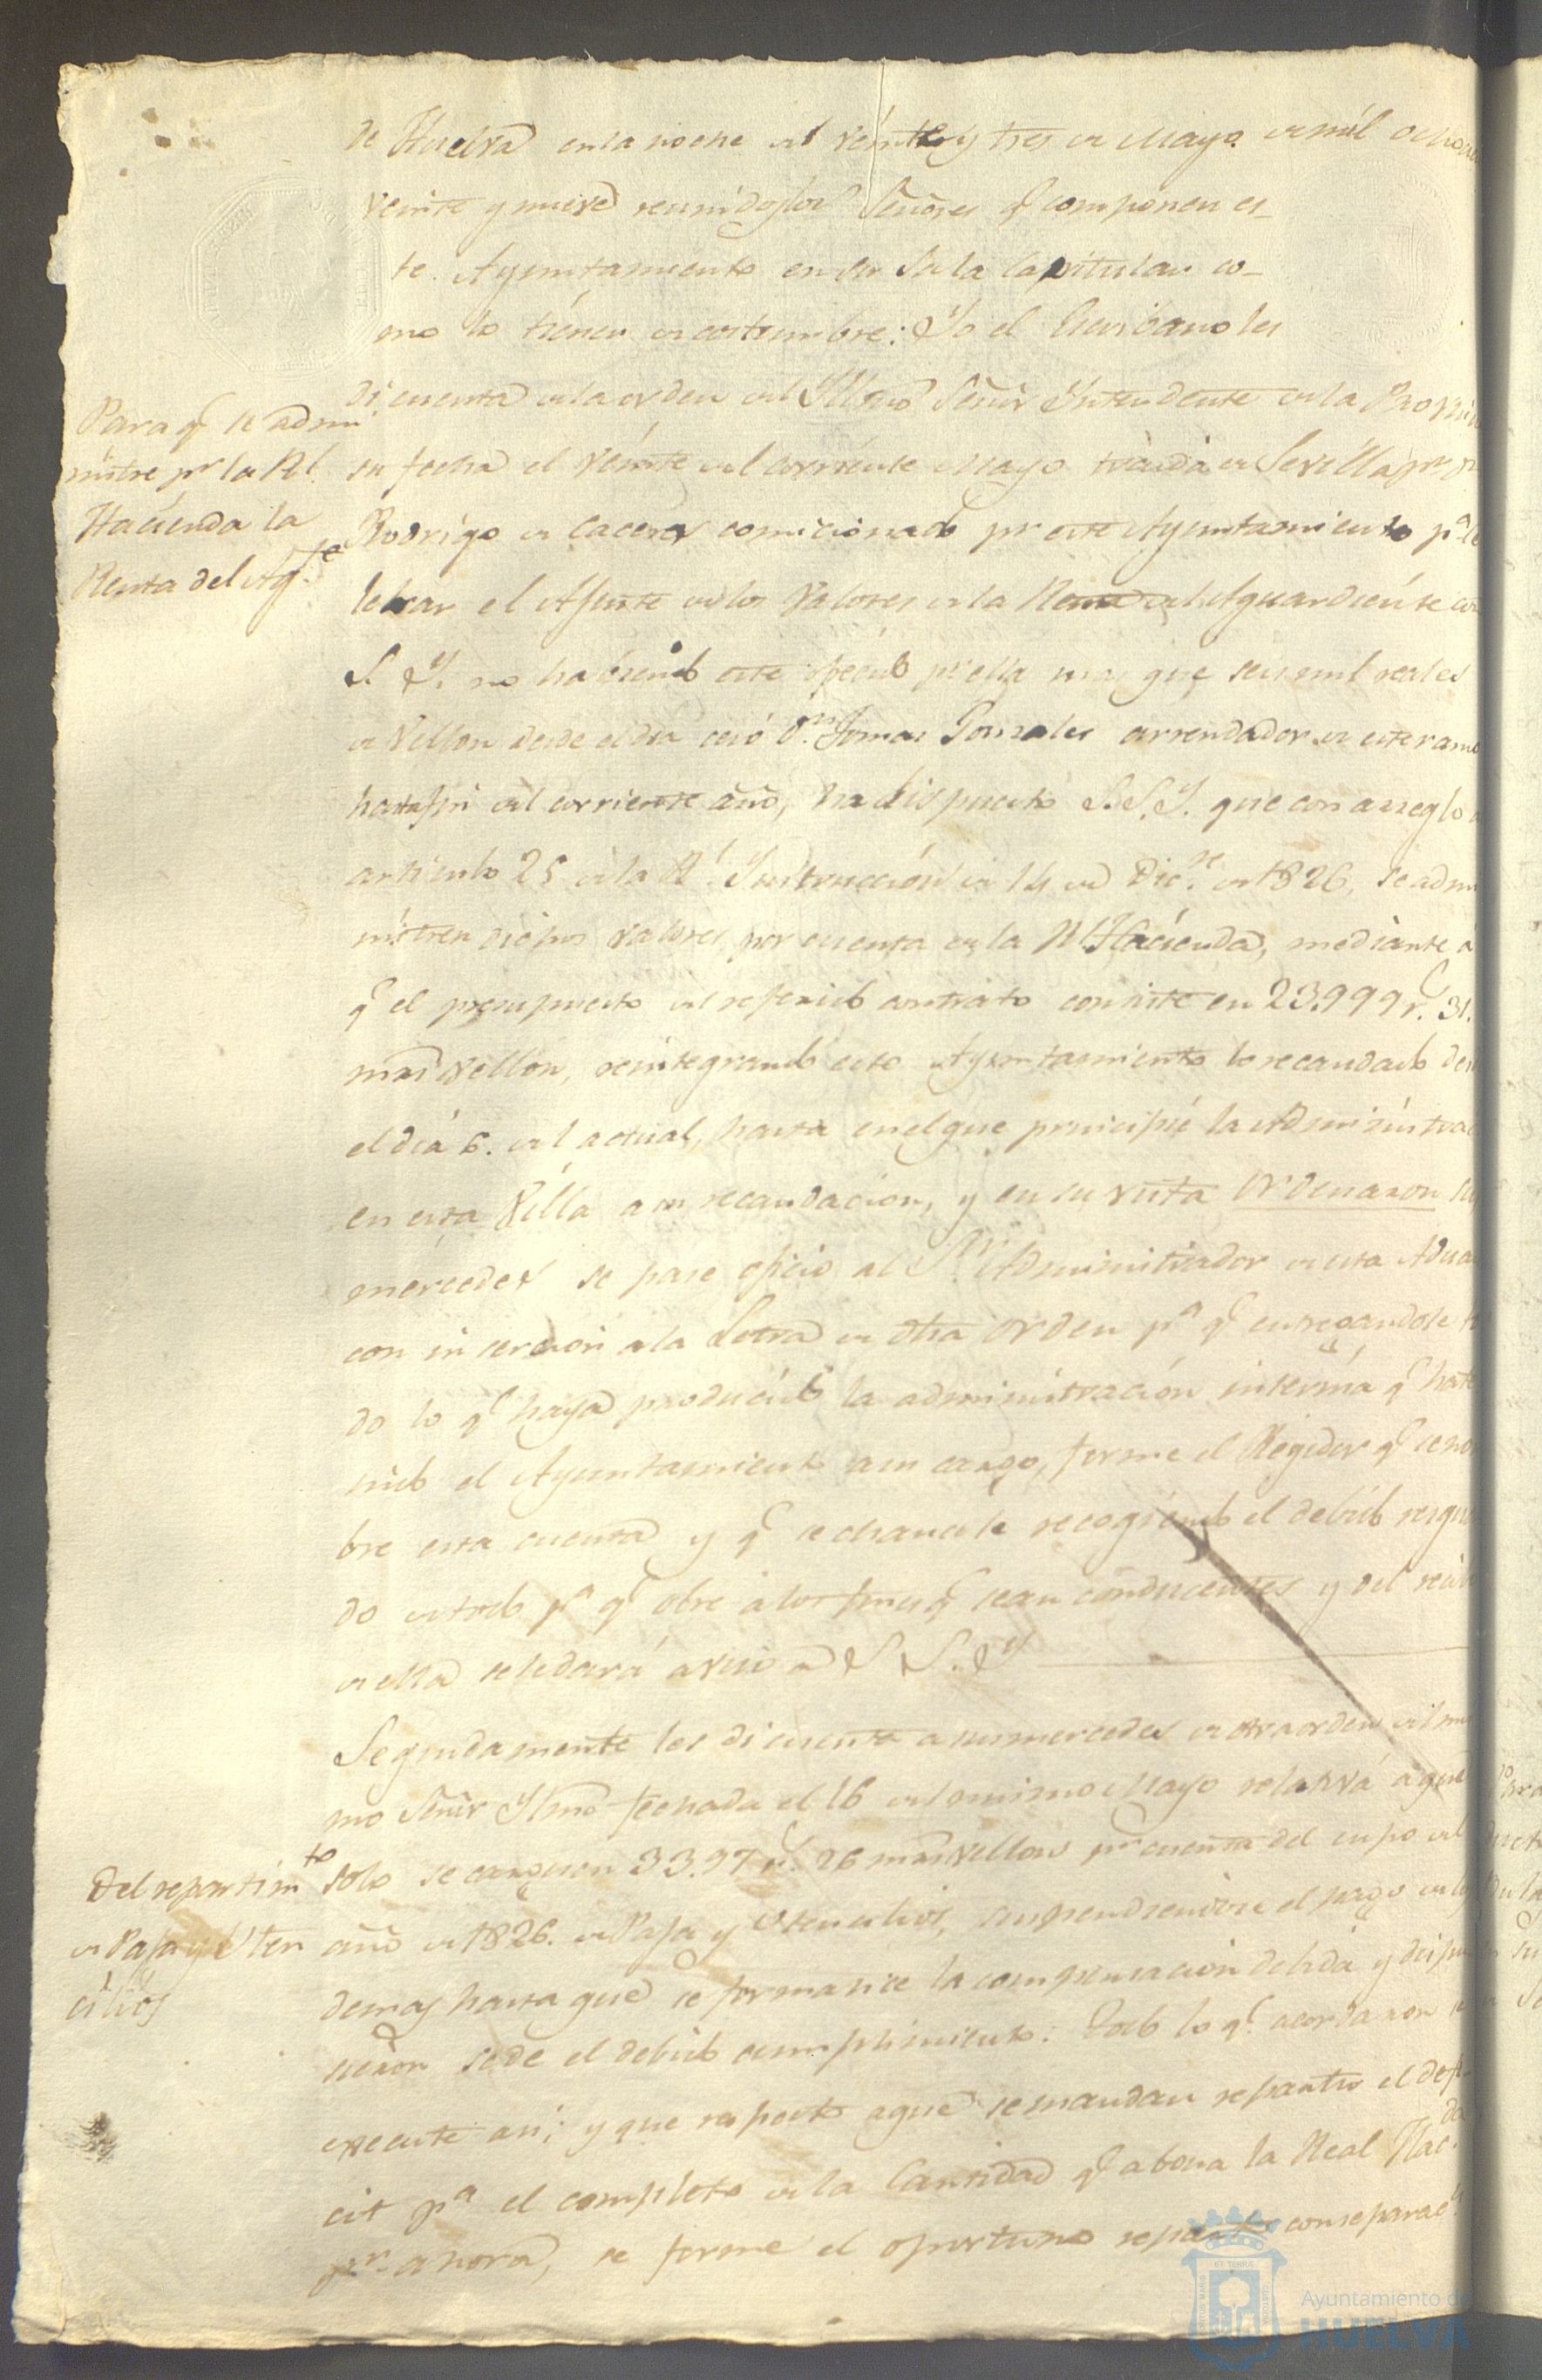 de Huelva en la noche del veinte y tres de Mayo de mil ocho
veinte y nueve reunidos los Señores q.e componen es-
te Ayuntamiento en su Sala Capitular co-
mo lo tienen de costumbre: Yo el Escribano les
di cuenta de la orden del Yllmo Señor Yntendente de la Provin
Para q.e se admi
nistre pr. la Rl.
Hacienda la
Renta del Ag.te
su fecha el veinte del corriente Mayo traida de Sevilla pr.
Rodrigo de Caceres comicionado pr este Ayuntamiento p.a ce
lebrar el Ajuste de los Valores de la Renta del Aguardiente con
S. Y. no habiendo este ofrecido pr ella mas que seis mil reales
de Vellon desde el dia cesó D.n Tomas Gonzales arrendador de este ramo
hasta fin del corriente año, ha dispuesto S.S.Y. que con arreglo a
articulo 25 de la Rl. Ynstruccion de 14 de Dic.re de 1826, se admi
nistren dichos valores por cuenta de la Rl Hacienda, mediante a
q.e el presupuesto del referido contrato consiste en 23.999 r.s 31.
mrs vellon, reintegrando este Ayuntamiento lo recaudado des
el dia 6. del actual, hasta en el que principie la Administrac
en esta Villa a su recaudacion, y en su vista Ordenaron su
mercedes se pase oficio al S.or Administrador de esta Adua
con insercion a la Letra de dha orden p.a q.e entregandole to
do lo q.e haya producido la administracion interina q.e ha te
nido el Ayuntamiento a su cargo, forme el Regidor q.e se no
bre esta cuenta y q.e se chancele recogiendo el debido resgua
do de todo p.a q.e obre a los fines q.e sean conducentes y del recivo
de ella se le dará aviso a S.S.Y.
Segundamente les di cuenta a sus mercedes de otra orden del mis
mo Señor Yllmo fechada el 16 del mismo Mayo relativa a que
Del repartim.to
de Paja y Uten
cilios
solo se carguen 33.97 r.s 26 mrs vellon pr cuenta del cupo del
año de 1826. de Paja y Utencilios, suspendiendose el pago de lo
demas hasta que se formalice la compensacion debida y dispu
sieron se dé el debido cumplimiento. Todo lo q.e acordaron se
execute asi; y que respecto a que se mandan repartir el defi
cit p.a el completo de la Cantidad q.e abona la Real Hac.da
pr. ahora, se forme el oportuno reparto con separac.n
Ayuntamiento de
HUELVA